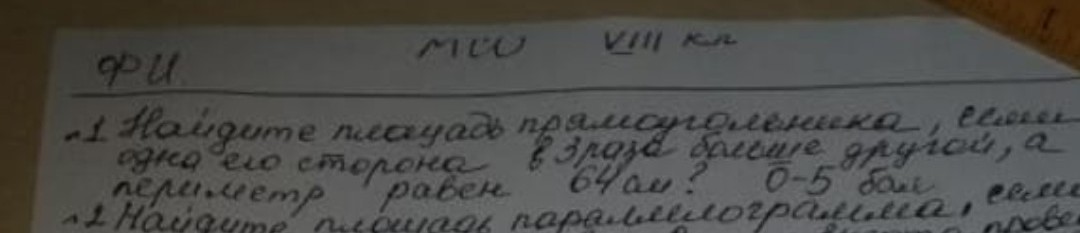 ФИ VIII кл
№1 Найдите площадь прямоугольника, если
одна его сторона в 3 раза больше другой, а
периметр равен 64 см? 0-5 бал
№2 Найдите площадь параллелограмма, если